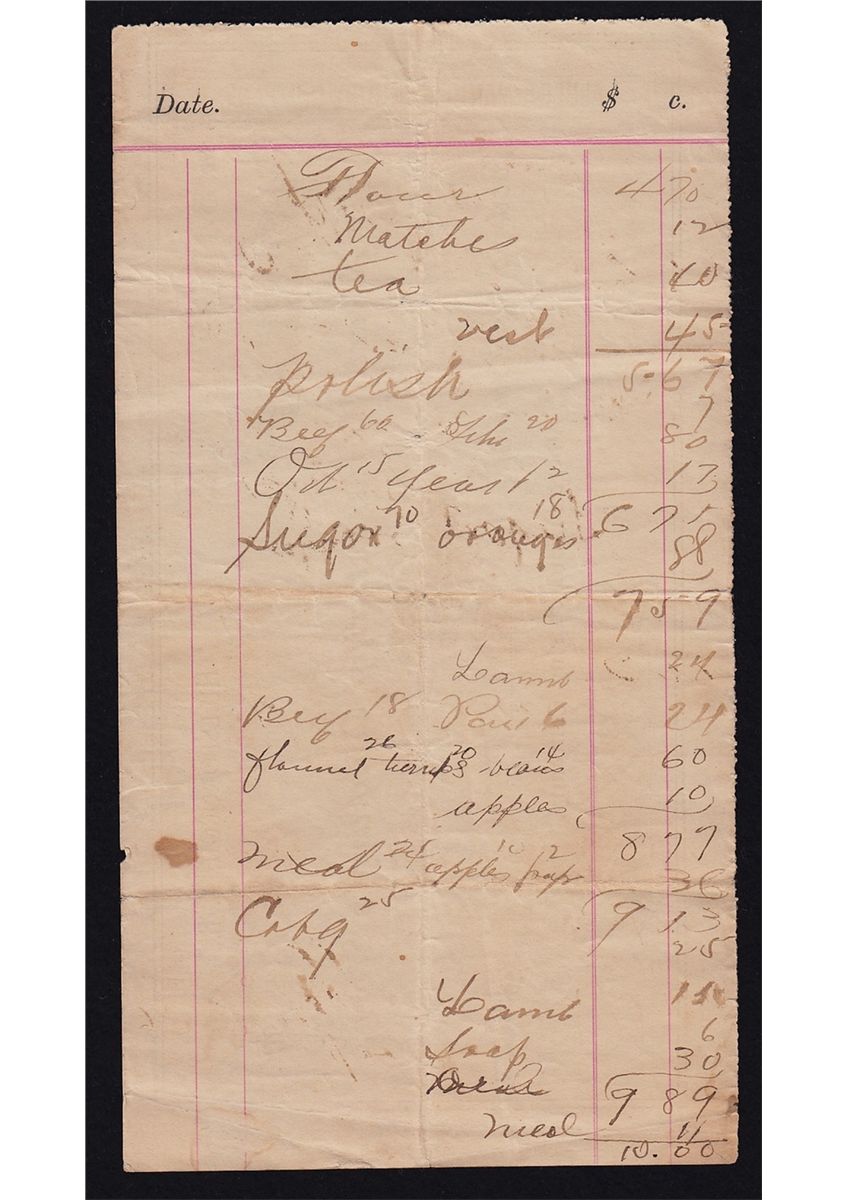 Date. $ c.
Flour 4 70
Matches 12
tea 40
vest 45
polish 5 67
7
Beef 60 20 80
Oil 15 Yeast 2 17
Sugar 70 oranges 18 6 71
88
7 59
Lamb 24
Beef 18 24
flannel 26 turnips 20 beans 14 60
apples 10
8 77
meal 24 apples 10 2 36
Cabg 25 9 13
25
Lamb 15
Soap 6
30
9 89
meal 11
10.00